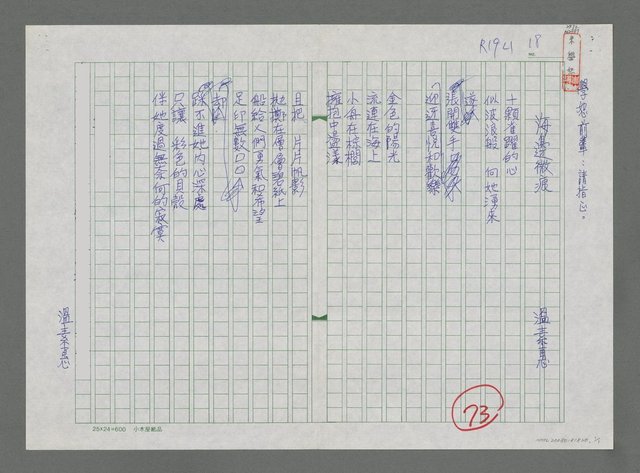 R19 L1 18
學恕前輩：請指正。
海邊微痕
溫素惠
十顆雀躍的心
似波浪般 向她湧來
張開雙手
迎迓喜悅和歡樂
金色的陽光
流連在海上
小舟在棕櫚
擁抱中盪漾
且把 片片帆影
拋擲在層層碧紙上
船給人們勇氣和希望
足印無數
卻
踩不進她內心深處
只讓 彩色的貝殼
伴她度過無奈何的寂寞
溫素惠
73
25×24=600 小木屋紙品